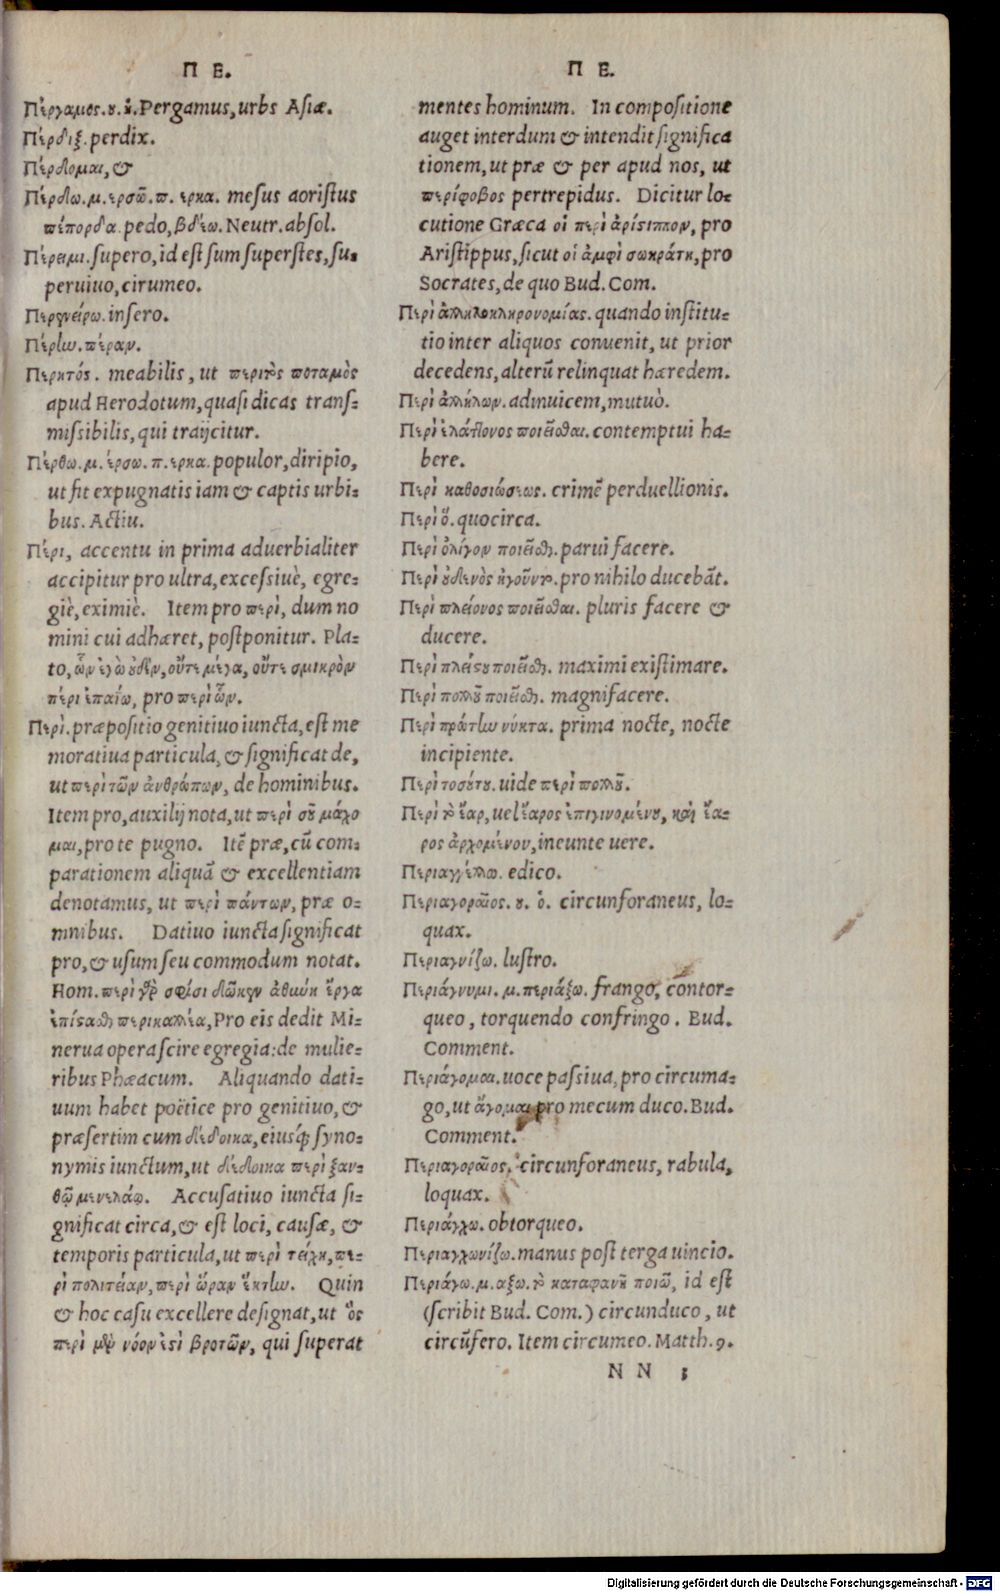 Π Ε.
Πέργαμος.ου.ἡ.Pergamus,urbs Asiæ.
Πέρδιξ.perdix.
Πέρδομαι,&
Πέρδω.μ.ερσῶ.π.ερκα. mesus aoristus
πέπορδα.pedo,βδέω.Neutr.absol.
Πέρειμι.supero,id est sum superstes,su-
peruiuo,cirumeo.
insero.
Πέρην.πέραν.
Περητός. meabilis, ut ποταμὸς
apud Herodotum,quasi dicas trans-
missibilis,qui traijcitur.
Πέρθω.μ.έρσω.π.ερκα.populor,diripio,
ut fit expugnatis iam & captis urbi-
bus.Actiu.
Πέρι, accentu in prima aduerbialiter
accipitur pro ultra,excessiuè, egre-
giè,eximiè. Item pro περὶ, dum no
mini cui adhæret,postponitur. Pla-
to,ὧν ἐγὼ οὐδὲν,οὔτε μέγα,οὔτε σμικρὸν
πέρι ἐπαΐω, pro περὶ ὧν.
Περὶ.præpositio genitiuo iuncta,est me
moratiua particula,& significat de,
ut περὶ τῶν ἀνθρώπων, de hominibus.
Item pro,auxilij nota,ut περὶ σοῦ μάχο
μαι,pro te pugno. Itē præ,cū com-
parationem aliquā & excellentiam
denotamus, ut περὶ πάντων, præ o-
mnibus. Datiuo iuncta significat
pro,& usum seu commodum notat.
Hom.περὶ γάρ σφίσι δῶκεν ἀθήνη ἔργα
ἐπίστασθαι περικαλλέα,Pro eis dedit Mi-
nerua opera scire egregia:de mulie-
ribus Phæacum. Aliquando dati-
uum habet poëtice pro genitiuo,&
præsertim cum δέδοικα,eiusq́; syno-
nymis iunctum,ut δέδοικα περὶ ξαν-
θῷ μενελάῳ. Accusatiuo iuncta si-
gnificat circa,& est loci, causæ, &
temporis particula,ut περὶ τείχη,πε-
ρὶ πολιτείαν,περὶ ὥραν ἕκτην. Quin
& hoc casu excellere designat,ut ὃς
περὶ μὲν νόον ἐστὶ βροτῶν, qui superat
Π Ε.
mentes hominum. In compositione
auget interdum & intendit significa
tionem,ut præ & per apud nos, ut
περίφοβος pertrepidus. Dicitur lo-
cutione Græca οἱ περὶ ἀρίστιππον, pro
Aristippus,sicut οἱ ἀμφὶ σωκράτη,pro
Socrates,de quo Bud.Com.
Περὶ ἀλληλοκληρονομίας.quando institu-
tio inter aliquos conuenit, ut prior
decedens,alterū relinquat hæredem.
Περὶ ἀλλήλων.adinuicem,mutuò.
Περὶ ἐλάττονος ποιεῖσθαι.contemptui ha-
bere.
Περὶ καθοσιώσεως. crimē perduellionis.
Περὶ ὅ.quocirca.
Περὶ ὀλίγον ποιεῖσθαι.parui facere.
Περὶ οὐδενὸς ἡγοῦντο.pro nihilo ducebāt.
Περὶ πλείονος ποιεῖσθαι. pluris facere &
ducere.
Περὶ πλείστου ποιεῖσθαι. maximi existimare.
Περὶ πολλοῦ ποιεῖσθαι. magnifacere.
Περὶ πρώτην νύκτα. prima nocte, nocte
incipiente.
Περὶ τοσούτου.uide περὶ πολλοῦ.
Περὶ τὸ ἔαρ,uel ἔαρος ἐπιγινομένου, καὶ ἔα-
ρος ἀρχομένου,ineunte uere.
Περιαγγέλλω. edico.
Περιαγοραῖος. ου. ὁ. circunforaneus, lo-
quax.
Περιαγνίζω. lustro.
Περιάγνυμι. μ.περιάξω. frango, contor-
queo, torquendo confringo. Bud.
Comment.
Περιάγομαι.uoce passiua,pro circuma-
go,ut ἄγομαι pro mecum duco.Bud.
Comment.
Περιαγοραῖος. circunforaneus, rabula,
loquax.
Περιάγχω. obtorqueo.
Περιαγχωνίζω.manus post terga uincio.
Περιάγω.μ.αξω.τὸ καταφανῆ ποιῶ, id est
(scribit Bud. Com.) circunduco, ut
circūfero. Item circumeo. Matth.9.
N N 5
Digitalisierung gefördert durch die Deutsche Forschungsgemeinschaft - DFG